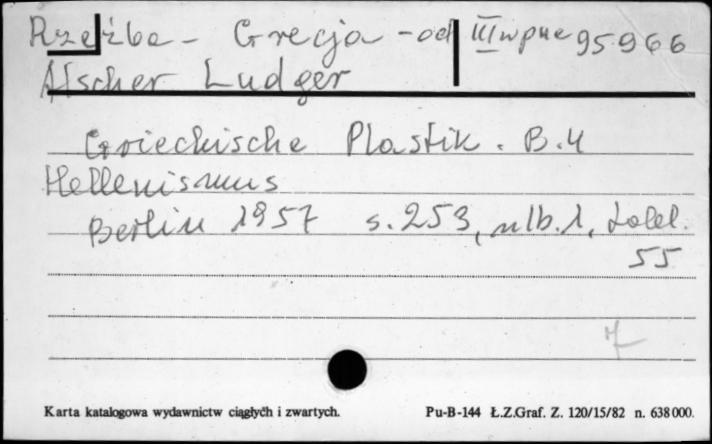 Rzeźba - Grecja - od III w pne 95966
Alscher Ludger
Griechische Plastik. B. 4
Hellenismus
Berlin 1957 s. 253, nlb. 1, tabl.
55
Karta katalogowa wydawnictw ciągłych i zwartych. Pu-B-144 Ł.Z.Graf. Z. 120/15/82 n. 638000.